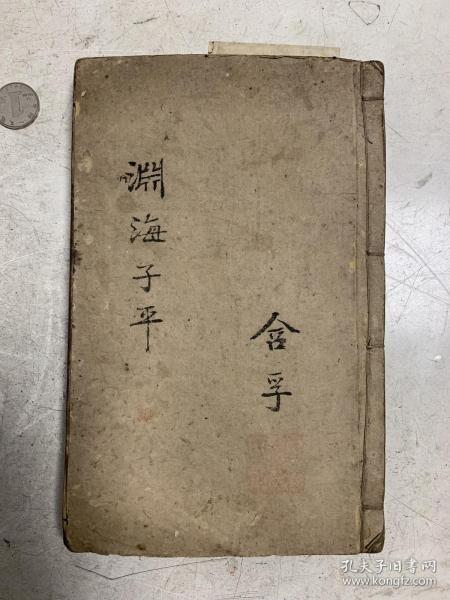 淵海子平
含孚
孔夫子旧书网
www.kongfz.com